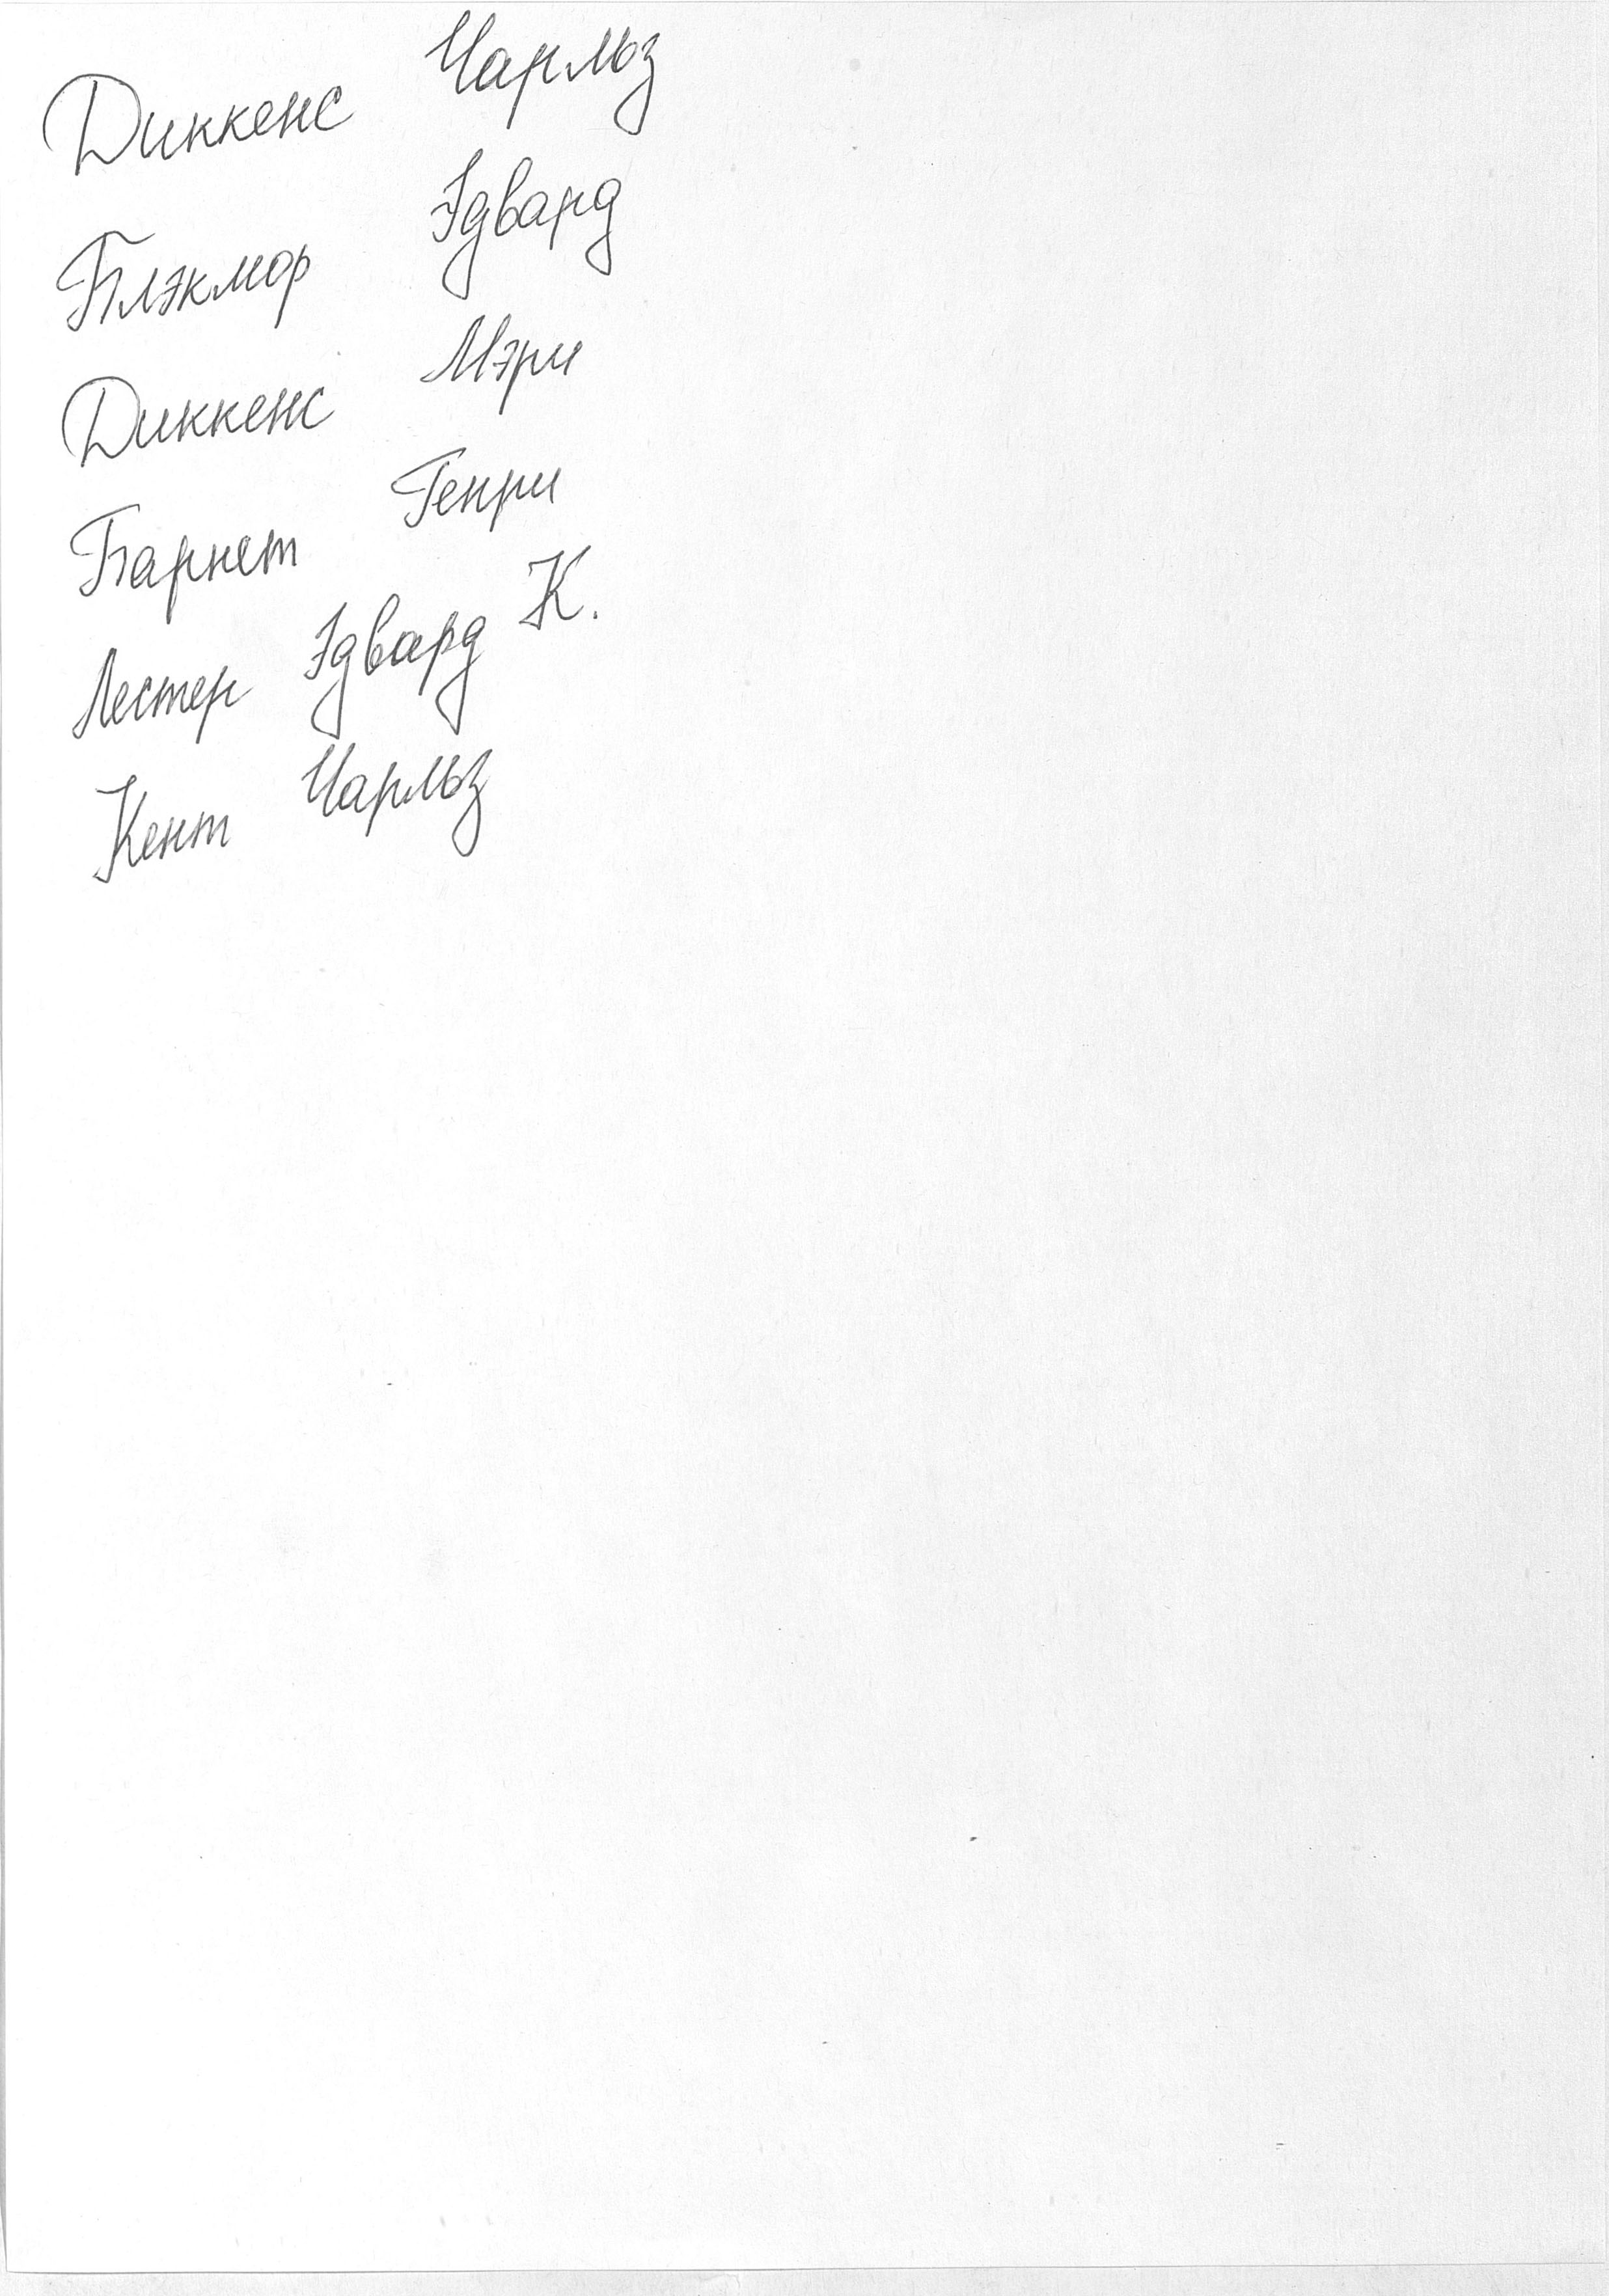 Диккенс Чарльз
Блэкмор Эдвард
Диккенс Мэри
Барнет Генри
Лестер Эдвард К.
Кент Чарльз